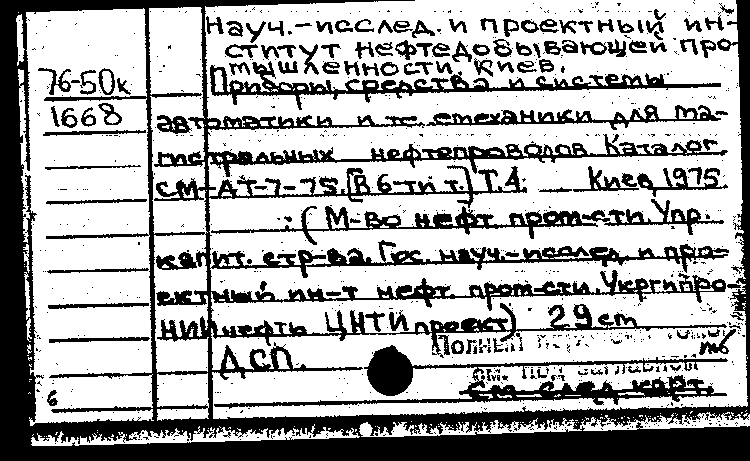 Науч.-исслед. и проектный ин-
ститут нефтедобывающей про-
мышленности. Киев.
76-50к
Приборы, средства и системы
1668
автоматики и телемеханики для ма-
гистральных нефтепроводов. Каталог
СМ-АТ-7-75. [В 6-ти т.] Т.4. Киев, 1975.
: (М-во нефт. пром-сти. Упр.
капит. стр-ва. Гос. науч.-исслед. и про-
ектный ин-т нефт. пром-сти. Укргипро-
НИИнефть ЦНТИ проект) 29 см
ДСП.
Полный
см. под заглавной
см след карт.
6